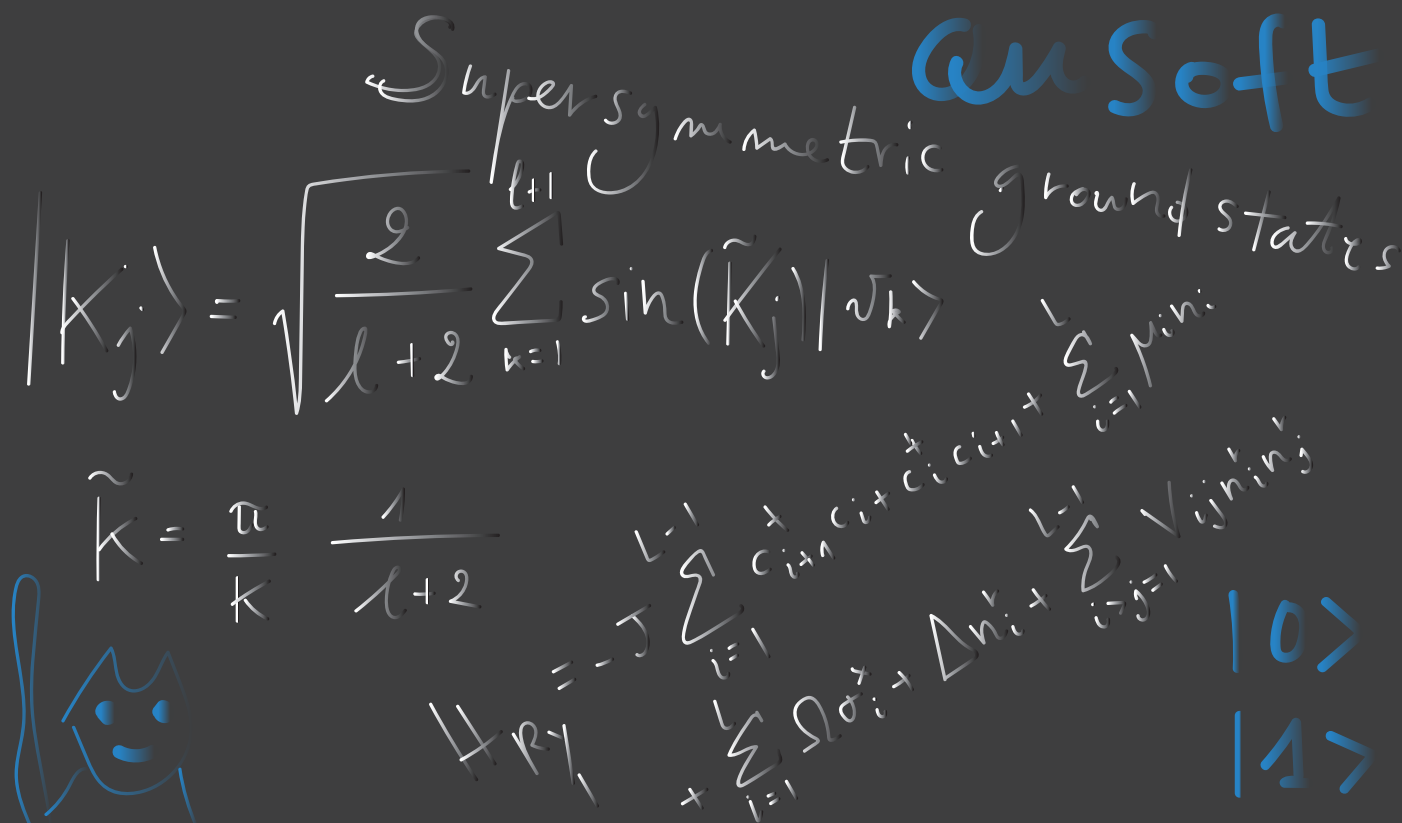 QuSoft
Supersymmetric ground states
|K_j⟩ = √(2/(l+2)) Σ_{k=1}^{l+1} sin(K̃_j)|v_k⟩
k̃ = π/k 1/(l+2)
H_{Ry} = -J Σ_{i=1}^{L-1} c^+_{i+1} c_i + c^+_i c_{i+1} + Σ_{i=1}^{L} μ_i n_i
+ Σ_{i=1}^{L} Ω σ^+_i + Δ n^r_i + Σ_{i>j=1}^{L-1} V_{ij} n^r_i n^r_j
|0>
|1>